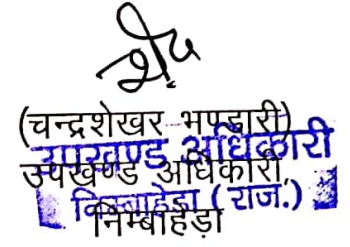 (चन्द्रशेखर भण्डारी)
उपखण्ड अधिकारी
उपखण्ड अधिकारी,
निम्बाहेड़ा (राज.)
निम्बाहेड़ा